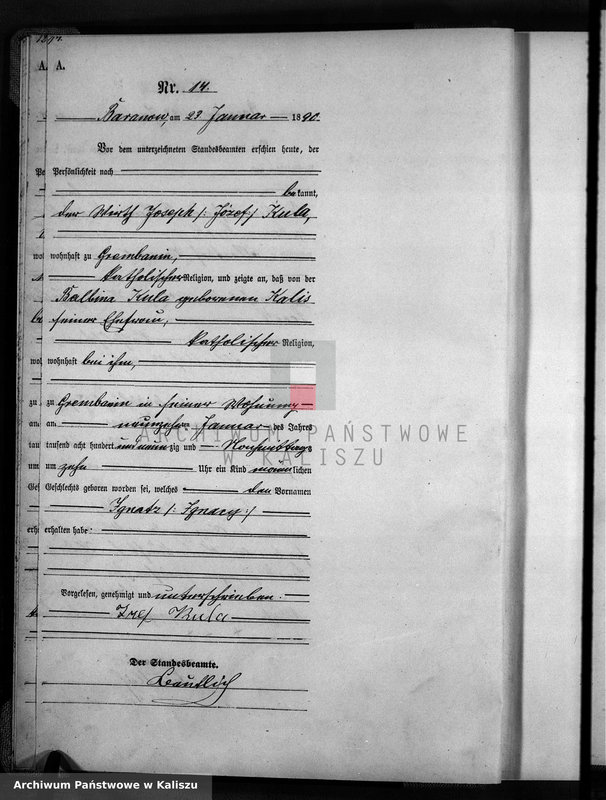 A. A.
Nr. 14.
Baranow, am 23 Januar 1890.
Vor dem unterzeichneten Standesbeamten erschien heute, der
Persönlichkeit nach
bekannt,
der Wirth Joseph /: Józef / Kula,
wohnhaft zu Grembanin,
katholischer Religion, und zeigte an, daß von der
Balbina Kula geborenen Kalis
seiner Ehefrau,
katholischer Religion,
wohnhaft bei ihm,
zu Grembanin in seiner Wohnung
am neunzehn Januar des Jahres
tausend acht hundert und neunzig und Nachmittags
um zehn Uhr ein Kind männlichen
Geschlechts geboren worden sei, welches den Vornamen
Ignatz /: Ignacy :/
erhalten habe:
Vorgelesen, genehmigt und unterschrieben.
Józef Kula
Der Standesbeamte.
ARCHIWUM PAŃSTWOWE
W KALISZU
Archiwum Państwowe w Kaliszu